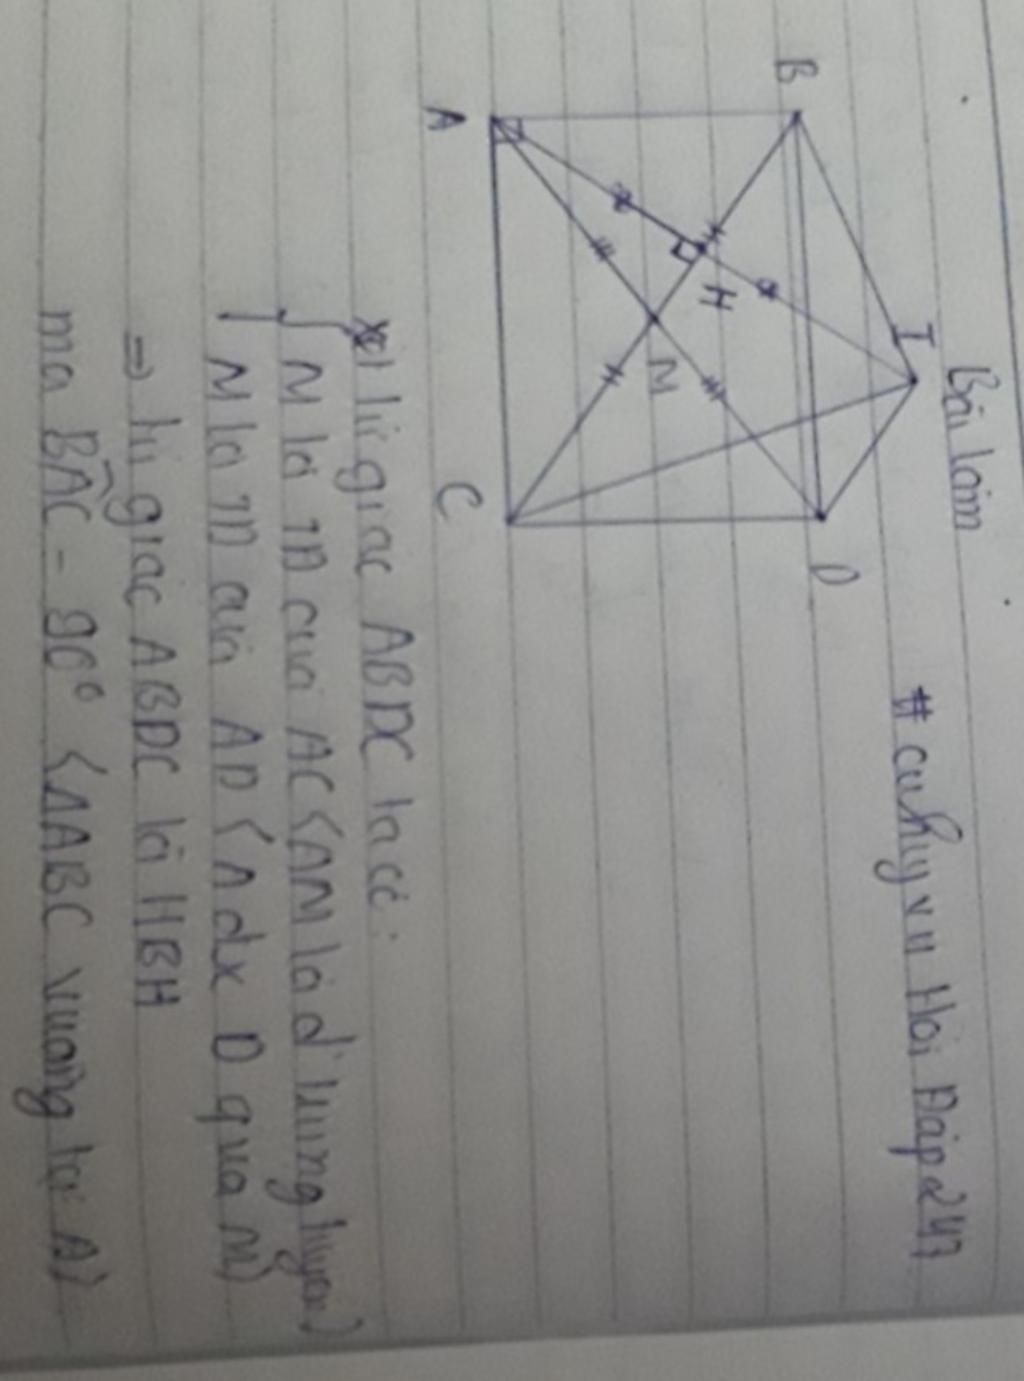 Bài làm
# cuhuyvu Hỏi Đáp 247
B
I
D
H
M
A
C
x) tứ giác ABDC ta có:
M là TĐ của AC (AM là đ' trung tuyến)
M là TĐ của AD (A đx D qua M)
=) tứ giác ABDC là HBH
mà BAC = 90° (ΔABC vuông tại A)